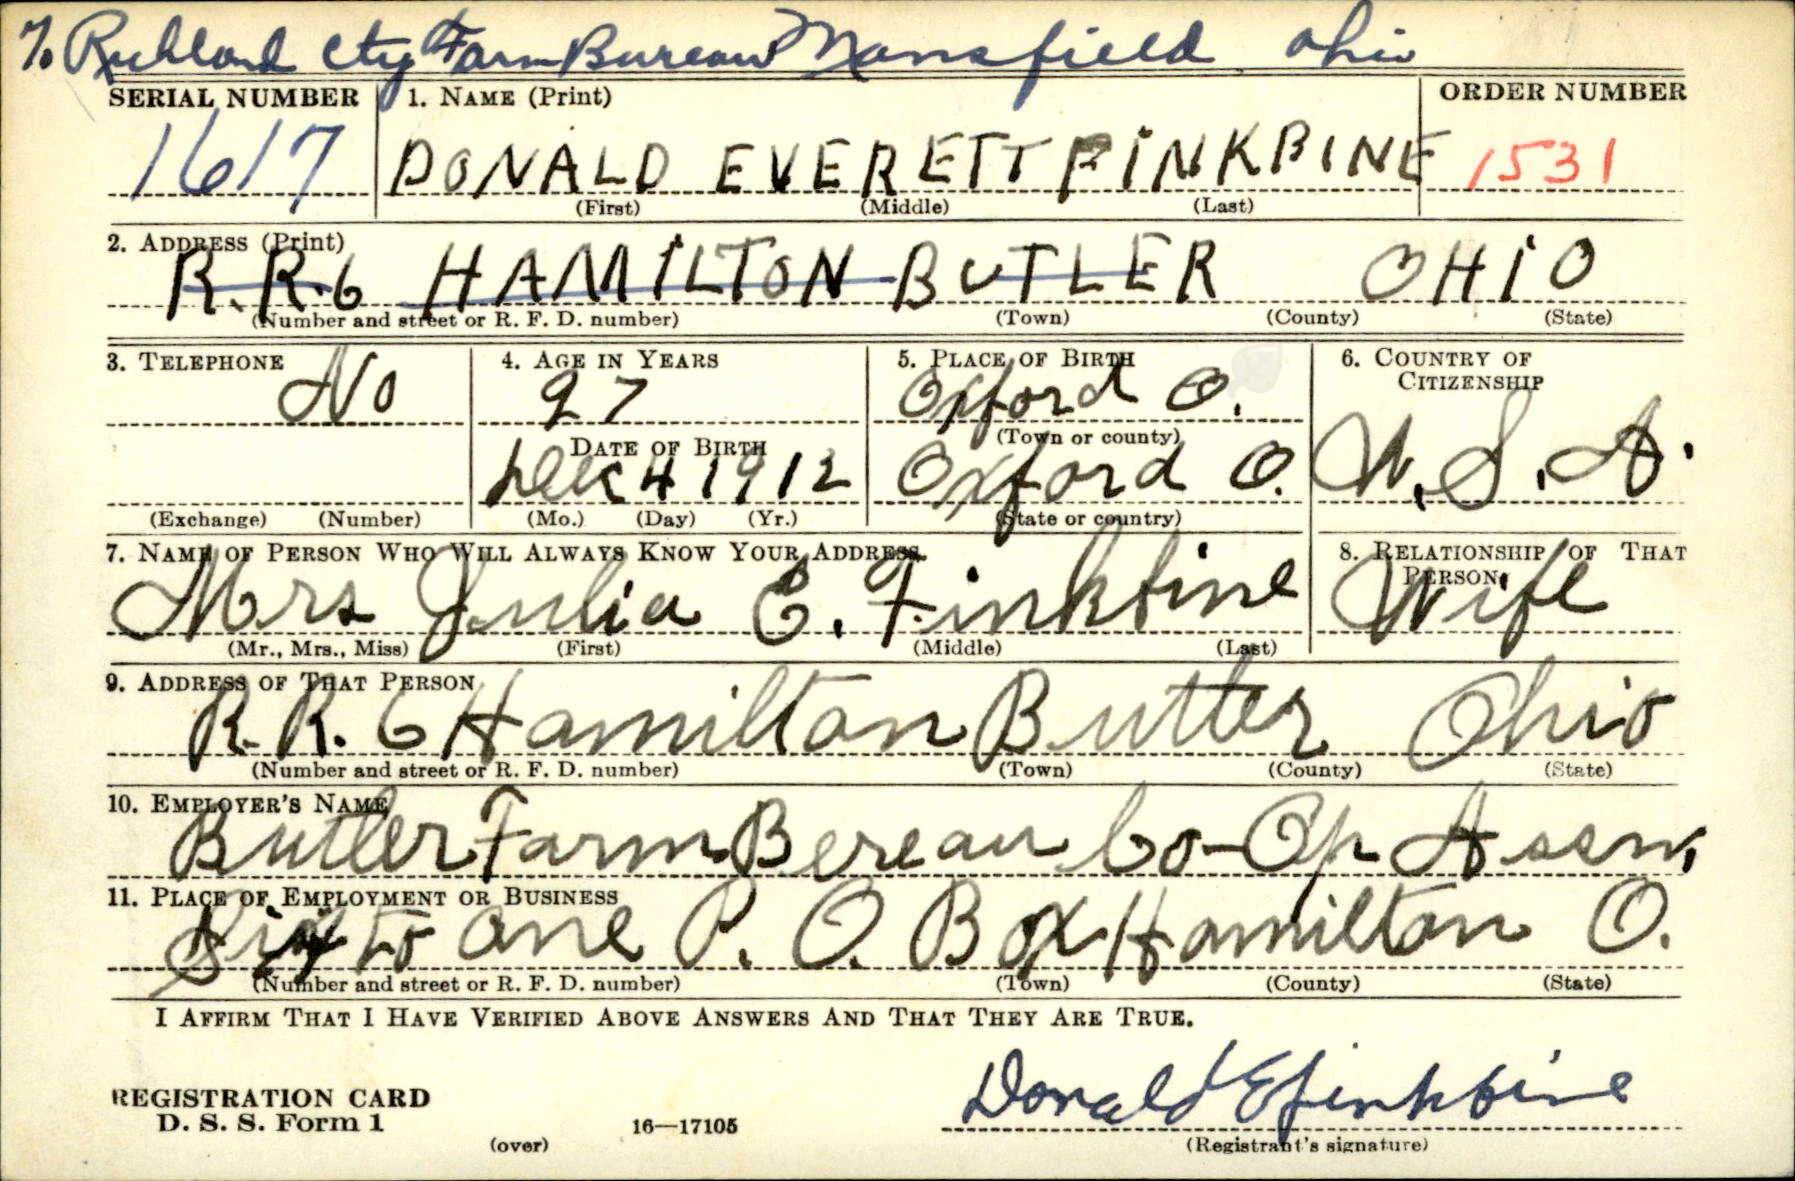 % Richland Cty Farm Bureau Mansfield Ohio
SERIAL NUMBER 1. NAME (Print) ORDER NUMBER
1617 DONALD EVERETT FINKBINE 1531
(First) (Middle) (Last)
2. ADDRESS (Print)
R.R.6 HAMILTON BUTLER OHIO
(Number and street or R. F. D. number) (Town) (County) (State)
3. TELEPHONE 4. AGE IN YEARS 5. PLACE OF BIRTH 6. COUNTRY OF CITIZENSHIP
No 27 Oxford O.
DATE OF BIRTH (Town or county)
Dec 4 1912 Oxford O. U.S.A.
(Exchange) (Number) (Mo.) (Day) (Yr.) (State or country)
7. NAME OF PERSON WHO WILL ALWAYS KNOW YOUR ADDRESS 8. RELATIONSHIP OF THAT PERSON
Mrs Julia E. Finkbine Wife
(Mr., Mrs., Miss) (First) (Middle) (Last)
9. ADDRESS OF THAT PERSON
R. R. 6 Hamilton Butler Ohio
(Number and street or R. F. D. number) (Town) (County) (State)
10. EMPLOYER'S NAME
Butler Farm Bereau Co-Op Assn,
11. PLACE OF EMPLOYMENT OR BUSINESS
one P. O. Box Hamilton O.
(Number and street or R. F. D. number) (Town) (County) (State)
I AFFIRM THAT I HAVE VERIFIED ABOVE ANSWERS AND THAT THEY ARE TRUE.
Donald E Finkbine
REGISTRATION CARD
D. S. S. Form 1 16—17105
(over) (Registrant's signature)